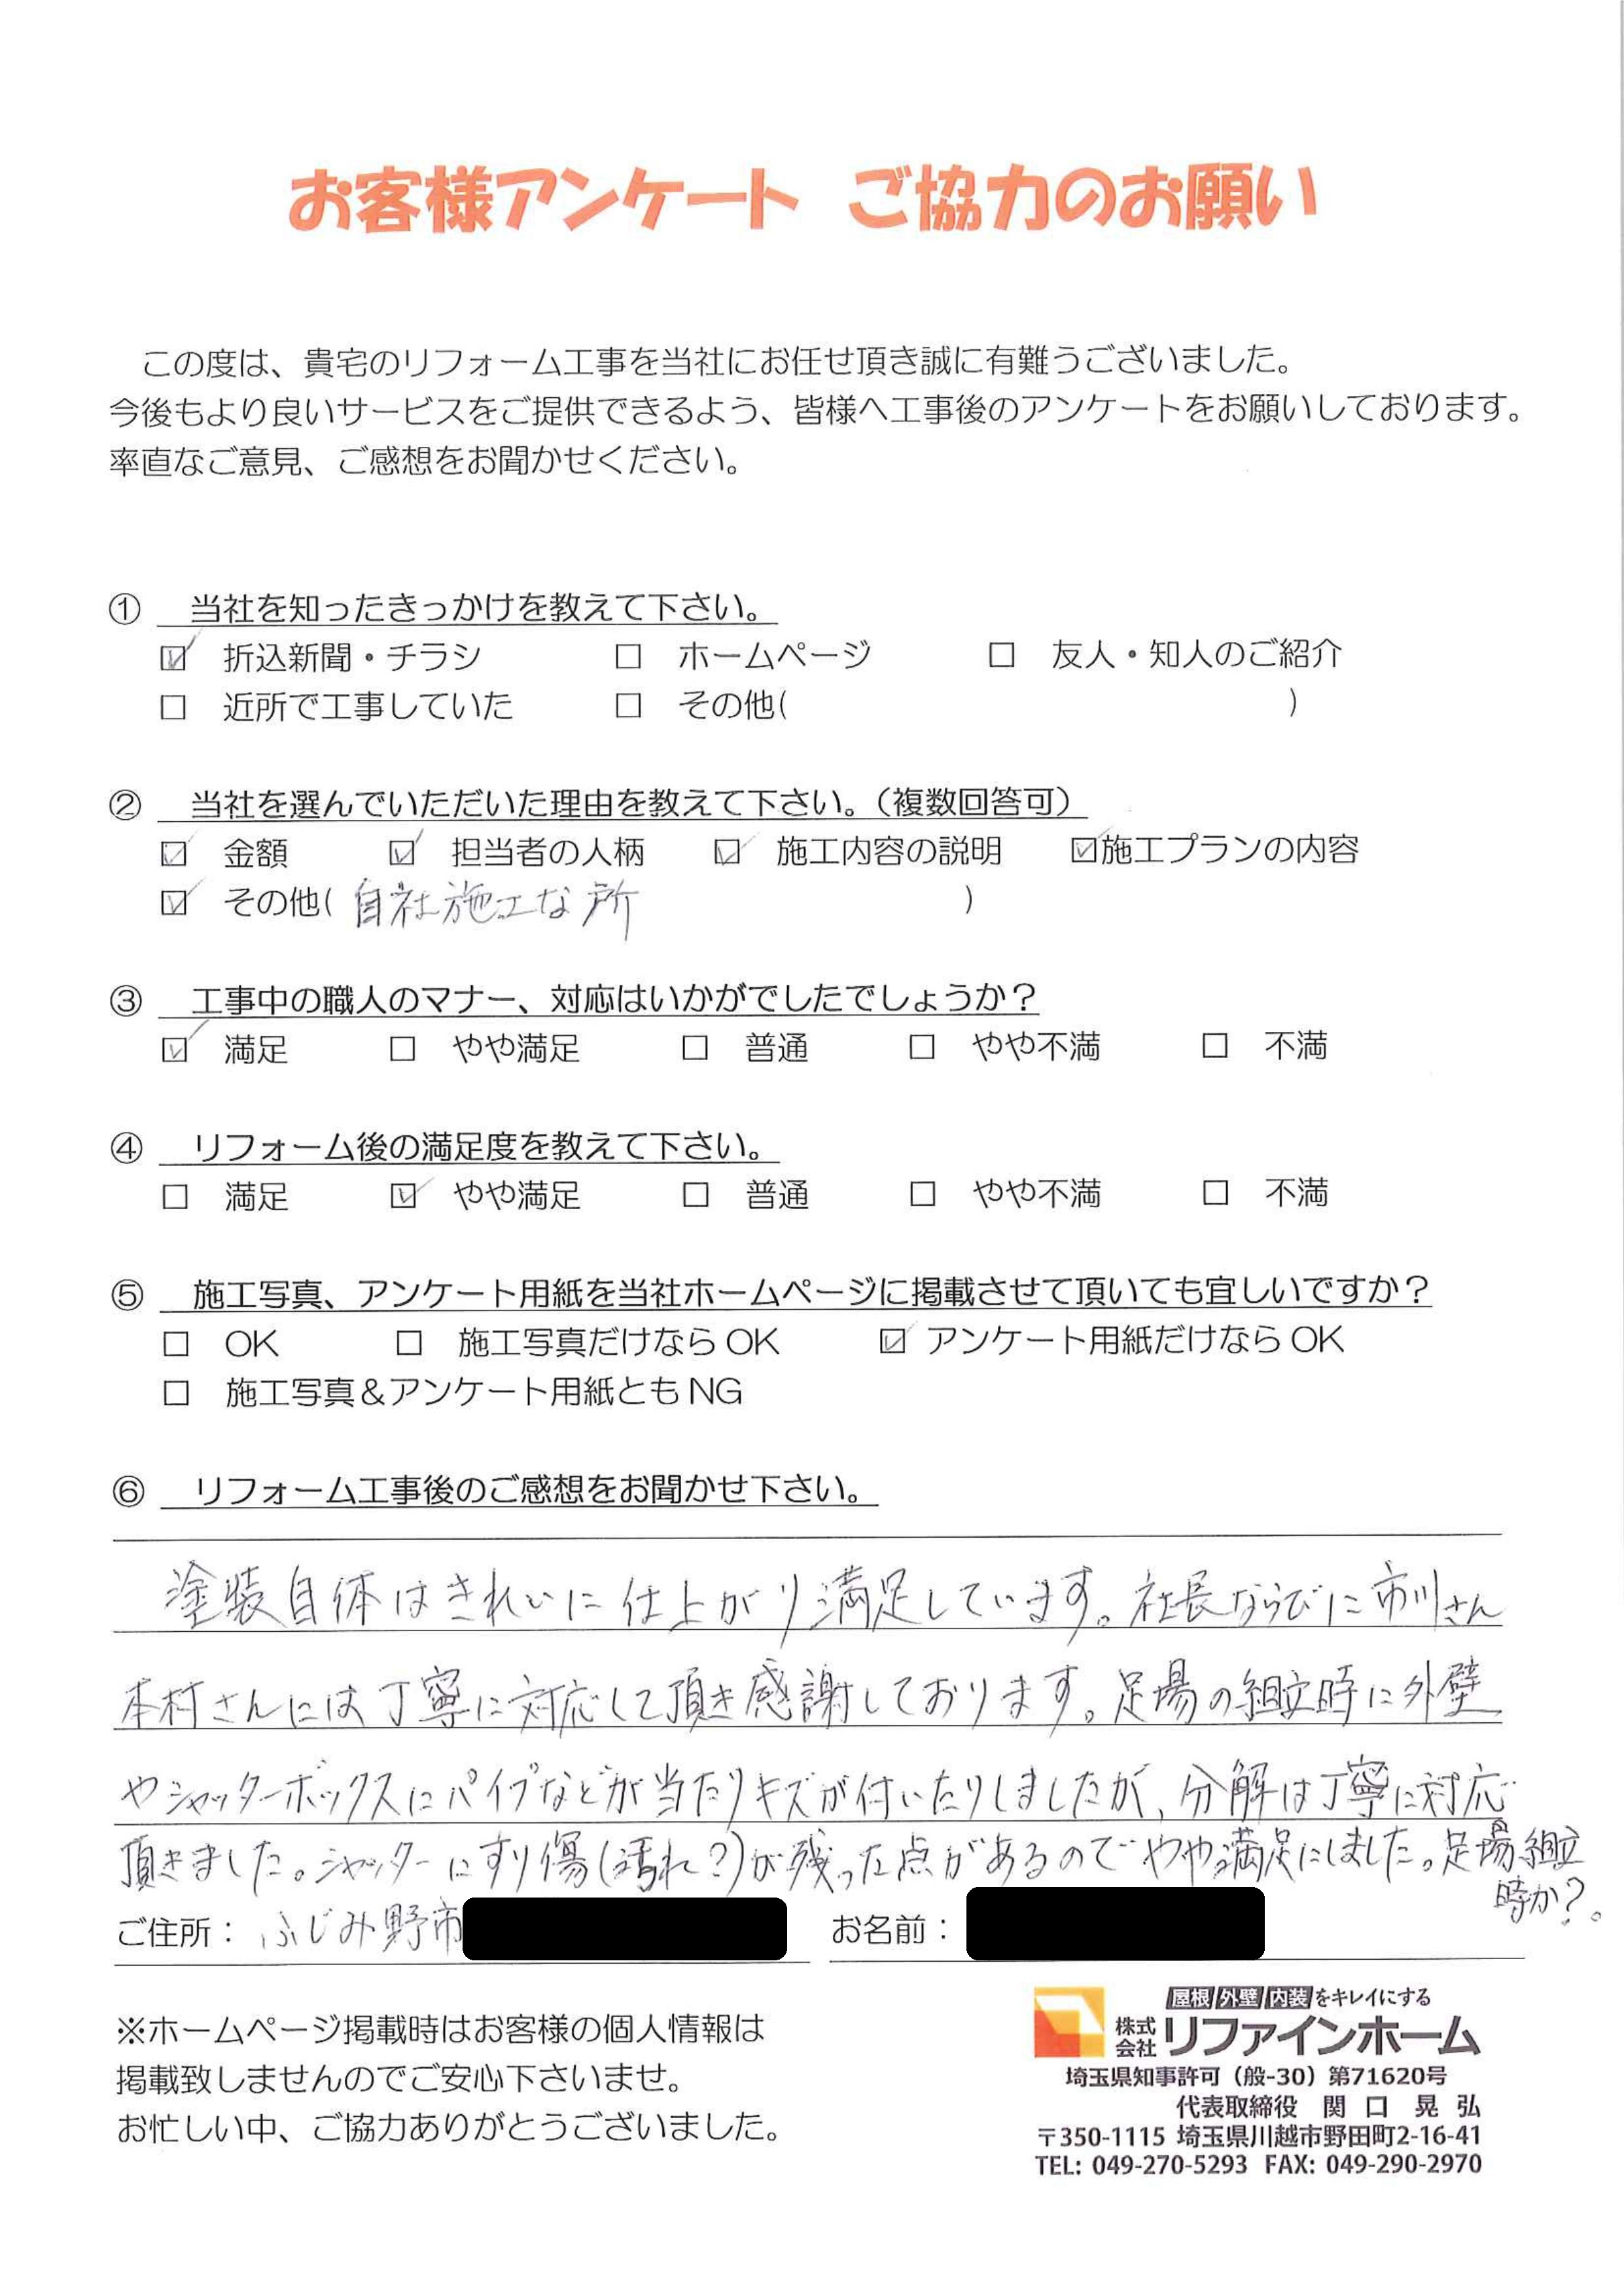 お客様アンケート ご協力のお願い
この度は、貴宅のリフォーム工事を当社にお任せ頂き誠に有難うございました。
今後もより良いサービスをご提供できるよう、皆様へ工事後のアンケートをお願いしております。
率直なご意見、ご感想をお聞かせください。
① 当社を知ったきっかけを教えて下さい。
☑ 折込新聞・チラシ □ ホームページ □ 友人・知人のご紹介
□ 近所で工事していた □ その他( )
② 当社を選んでいただいた理由を教えて下さい。（複数回答可）
☑ 金額 ☑ 担当者の人柄 ☑ 施工内容の説明 ☑施工プランの内容
☑ その他( 自社施工な所 )
③ 工事中の職人のマナー、対応はいかがでしたでしょうか？
☑ 満足 □ やや満足 □ 普通 □ やや不満 □ 不満
④ リフォーム後の満足度を教えて下さい。
□ 満足 ☑ やや満足 □ 普通 □ やや不満 □ 不満
⑤ 施工写真、アンケート用紙を当社ホームページに掲載させて頂いても宜しいですか？
□ OK □ 施工写真だけなら OK ☑ アンケート用紙だけなら OK
□ 施工写真＆アンケート用紙とも NG
⑥ リフォーム工事後のご感想をお聞かせ下さい。
塗装自体はきれいに仕上がり満足しています。社長ならびに市川さん
本村さんには丁寧に対応して頂き感謝しております。足場の組立時に外壁
やシャッターボックスにパイプなどが当たりキズが付いたりしましたが、分解は丁寧に対応
頂きました。シャッターにすり傷(汚れ?)が残った点があるのでやや満足にしました。足場組立
時か?。
ご住所： ふじみ野市 お名前：
※ホームページ掲載時はお客様の個人情報は
掲載致しませんのでご安心下さいませ。
お忙しい中、ご協力ありがとうございました。
屋根/外壁/内装をキレイにする
株式会社リファインホーム
埼玉県知事許可（般-30）第71620号
代表取締役 関口 晃弘
〒350-1115 埼玉県川越市野田町2-16-41
TEL: 049-270-5293 FAX: 049-290-2970